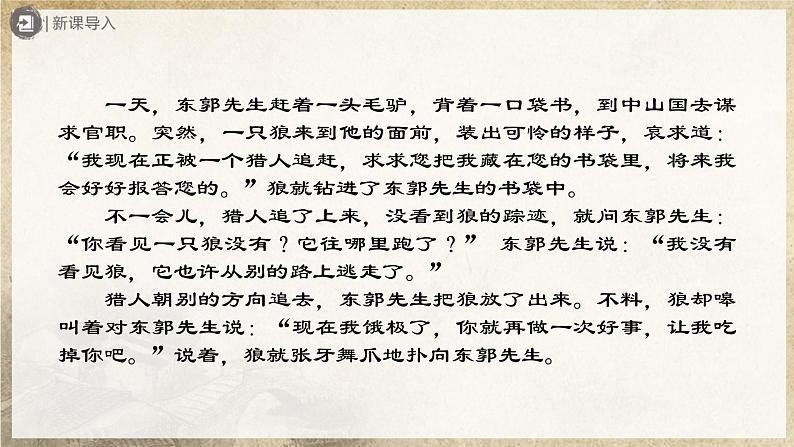 新课导入
一天，东郭先生赶着一头毛驴，背着一口袋书，到中山国去谋
求官职。突然，一只狼来到他的面前，装出可怜的样子，哀求道：
“我现在正被一个猎人追赶，求求您把我藏在您的书袋里，将来我
会好好报答您的。”狼就钻进了东郭先生的书袋中。
不一会儿，猎人追了上来，没看到狼的踪迹，就问东郭先生：
“你看见一只狼没有？它往哪里跑了？” 东郭先生说：“我没有
看见狼，它也许从别的路上逃走了。”
猎人朝别的方向追去，东郭先生把狼放了出来。不料，狼却嗥
叫着对东郭先生说：“现在我饿极了，你就再做一次好事，让我吃
掉你吧。”说着，狼就张牙舞爪地扑向东郭先生。